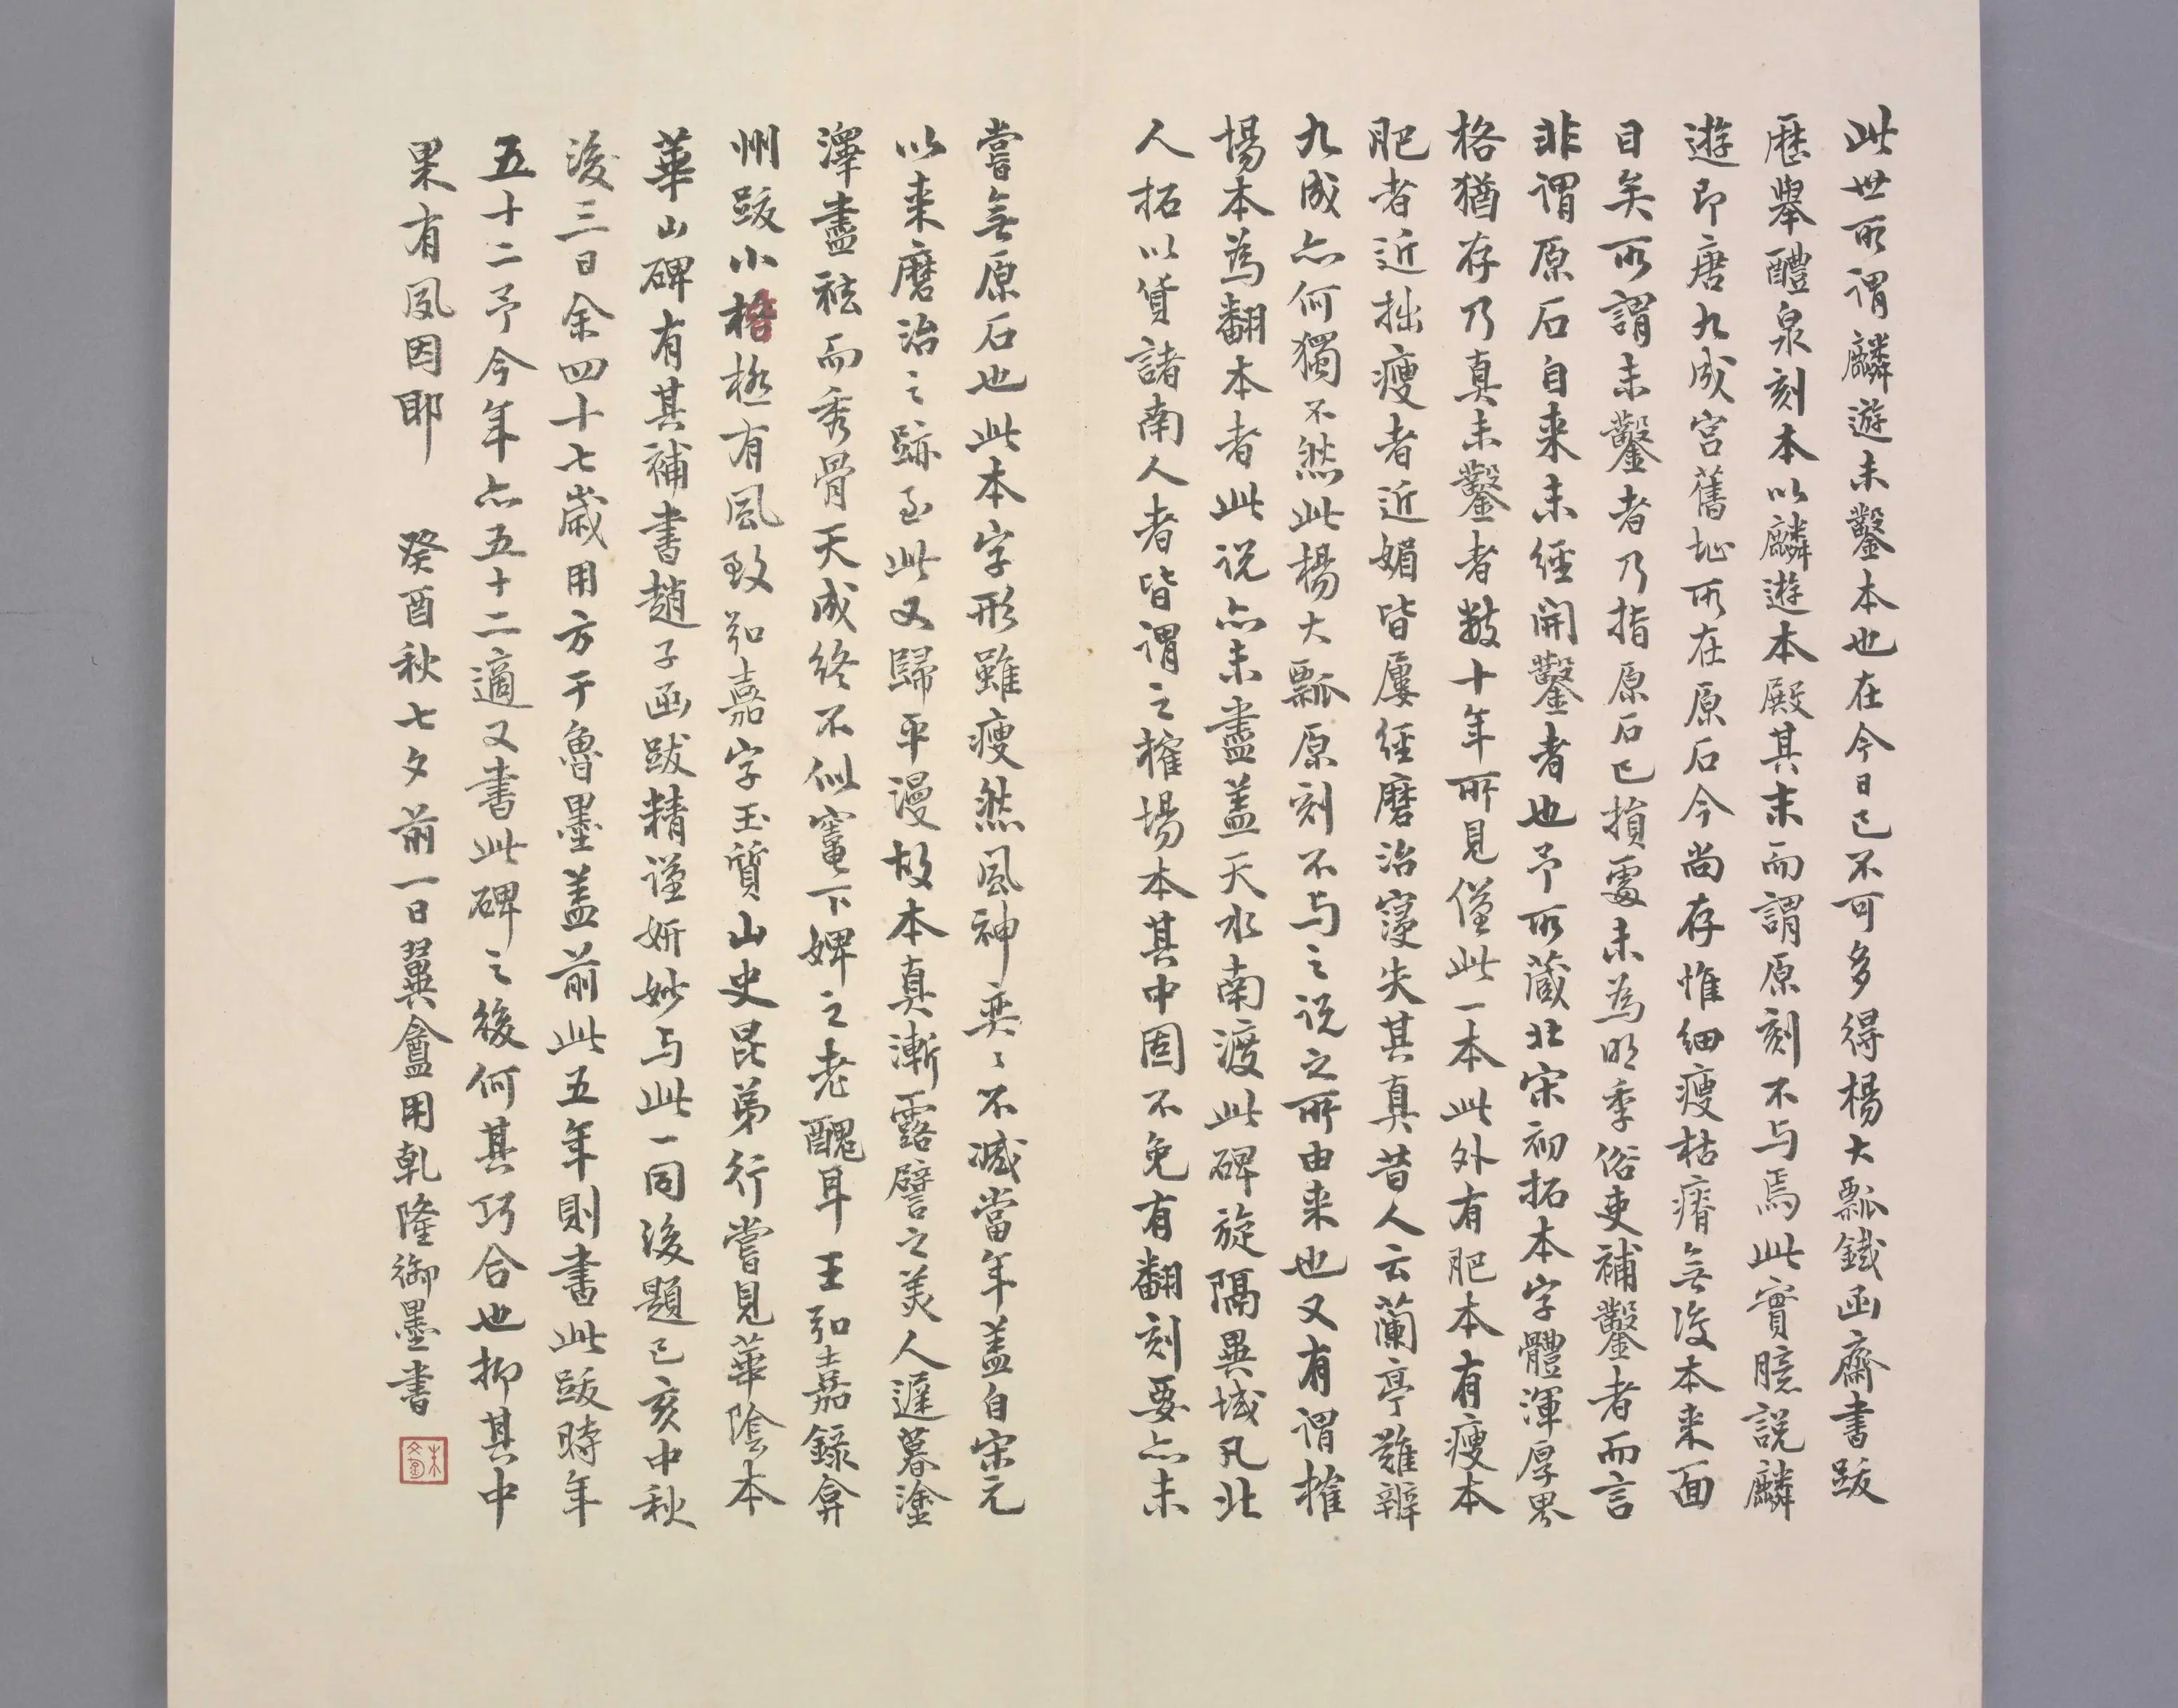 此世所谓麟遊未鑿本也在今日已不可多得楊大瓢鐵函齋書跋
歷舉醴泉刻本以麟遊本殿其末而謂原刻不与焉此實臆説麟
遊即唐九成宮舊址所在原石今尚存惟細瘦枯瘠無復本来面
目矣所謂未鑿者乃指原石已損處未為明季俗吏補鑿者而言
非謂原石自来未經開鑿者也予所藏北宋初拓本字體渾厚界
格猶存乃真未鑿者數十年所見僅此一本此外有肥本有瘦本
肥者近拙瘦者近媚皆屢經磨治寖失其真昔人云蘭亭難辨
九成亦何獨不然此楊大瓢原刻不与之说之所由来也又有谓榷
場本為翻本者此说亦未盡盖天水南渡此碑旋隔異域凡北
人拓以貨諸南人者皆谓之榷場本其中固不免有翻刻要亦未
嘗無原石也此本字形雖瘦然風神奕〻不減當年盖自宋元
以来磨治之跡至此又歸平漫故本真漸露譬之美人遲暮塗
澤盡祛而秀骨天成终不似竈下婢之老醜耳王弘嘉録弇
州跋小楷極有風致弘嘉字玉質山史昆弟行嘗見華陰本
華山碑有其補書趙子函跋精谨妍妙与此一同後題己亥中秋
後三日余四十七歲用方于魯墨盖前此五年則書此跋時年
五十二予今年亦五十二適又書此碑之後何其巧合也抑其中
果有夙因耶　癸酉秋七夕前一日翼盦用乾隆御墨書